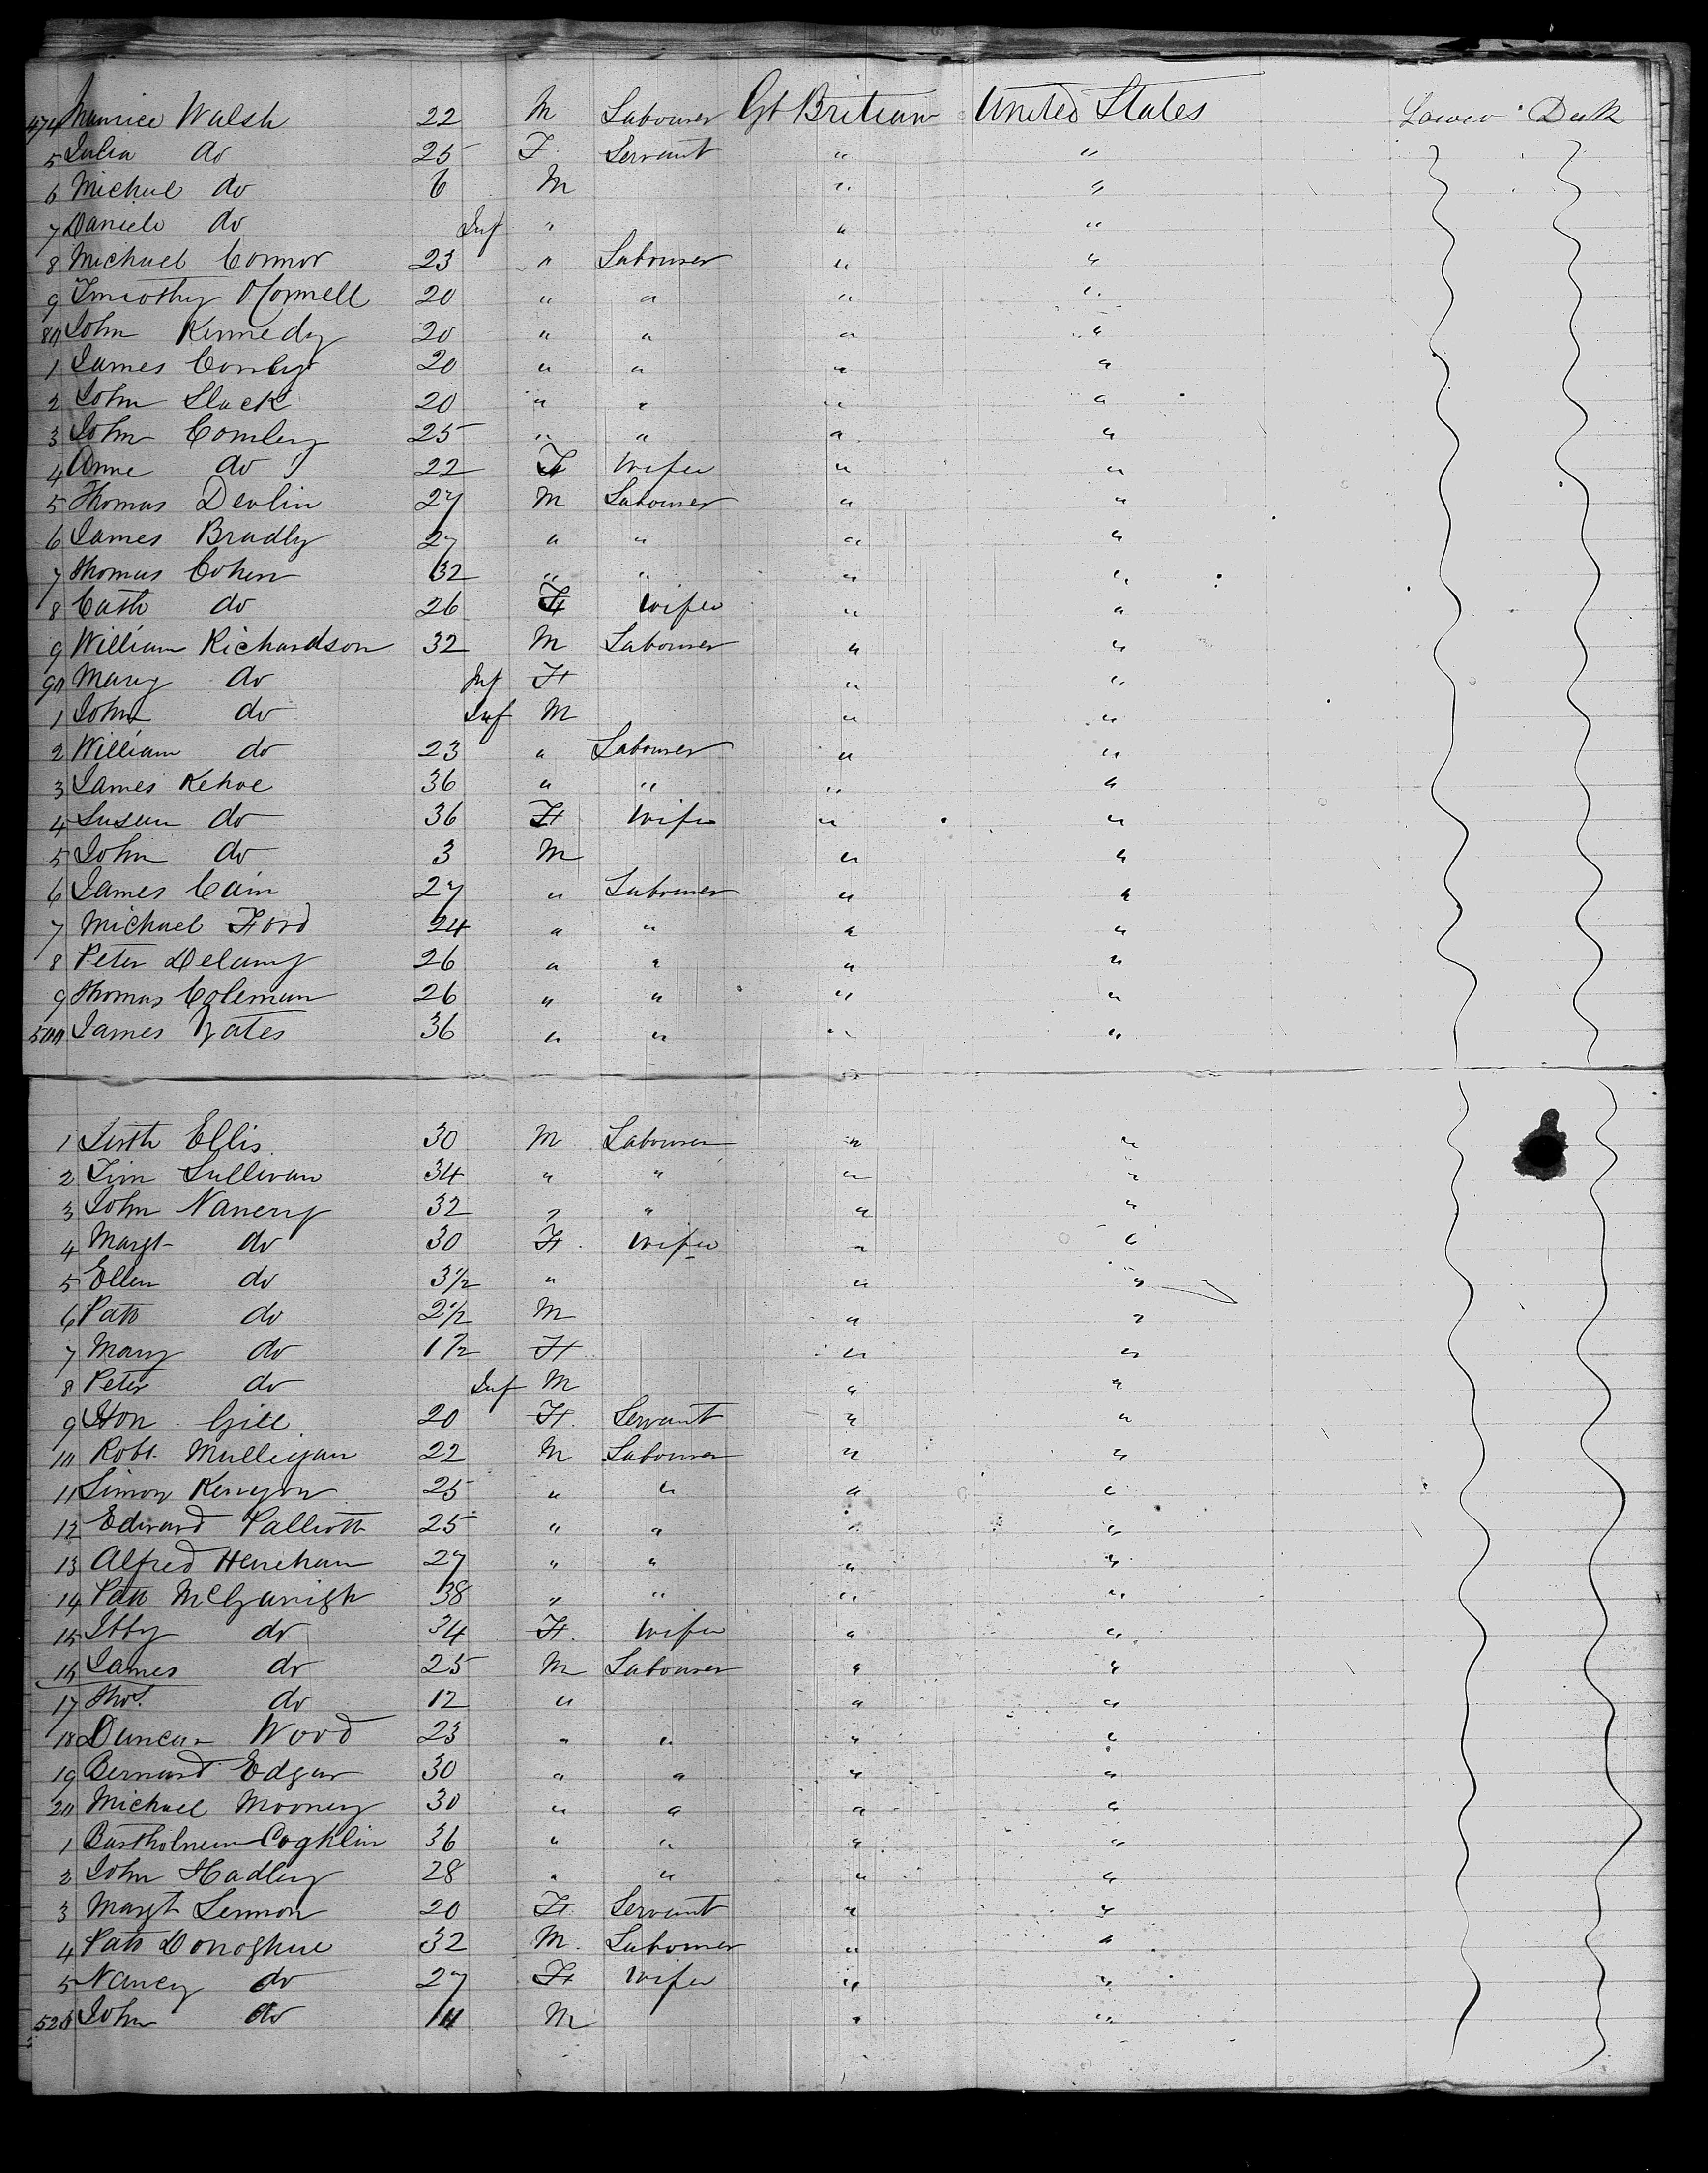 474 Maurice Walsh 22 M Labourer Gt Britian United States Lower Deck
5 Julia do 25 F Servant " "
6 Michael do 6 M " "
7 Daniele do Inf " " "
8 Michael Connor 23 " Labourer " "
9 Timothy OConnell 20 " " " "
80 John Kennedy 20 " " " "
1 James Conley 20 " " " "
2 John Slack 20 " " " "
3 John Comley 25 " " " "
4 Anne do 22 F Wife " "
5 Thomas Devlin 27 M Labourer " "
6 James Bradly 27 " " " "
7 Thomas Cohen 32 " " " "
8 Cath do 26 F Wife " "
9 William Richardson 32 M Labourer " "
90 Mary do Inf F " "
1 John do Inf M " "
2 William do 23 " Labourer " "
3 James Kehoe 36 " " " "
4 Susan do 36 F Wife " "
5 John do 3 M " "
6 James Cain 27 " Labourer " "
7 Michael Ford 24 " " " "
8 Peter Delany 26 " " " "
9 Thomas Coleman 26 " " " "
500 James Yates 36 " " " "
1 Ellis 30 M Labourer " "
2 Tim Sullivan 34 " " " "
3 John Nanery 32 " " " "
4 Margt do 30 F Wife " "
5 Ellen do 3 1/2 " " "
6 Patk do 2 1/2 M " "
7 Mary do 1 1/2 F " "
8 Peter do Inf M " "
9 Hon Gill 20 F Servant " "
10 Robt Mulligan 22 M Labourer " "
11 Simon Kenyon 25 " " " "
12 Edward 25 " " " "
13 Alfred Henehan 27 " " " "
14 Patk McGarrigh 38 " " " "
15 Ibby do 34 F Wife " "
16 James do 25 M Labourer " "
17 Thos. do 12 " " "
18 Duncan Wood 23 " " " "
19 Bernard Edgar 30 " " " "
20 Michael Mooney 30 " " " "
1 Bartholmew Coghlin 36 " " " "
2 John Hadley 28 " " " "
3 Margt Lennon 20 F Servant " "
4 Patk Donoghue 32 M Labourer " "
5 Nancy do 27 F Wife " "
526 John do M " "